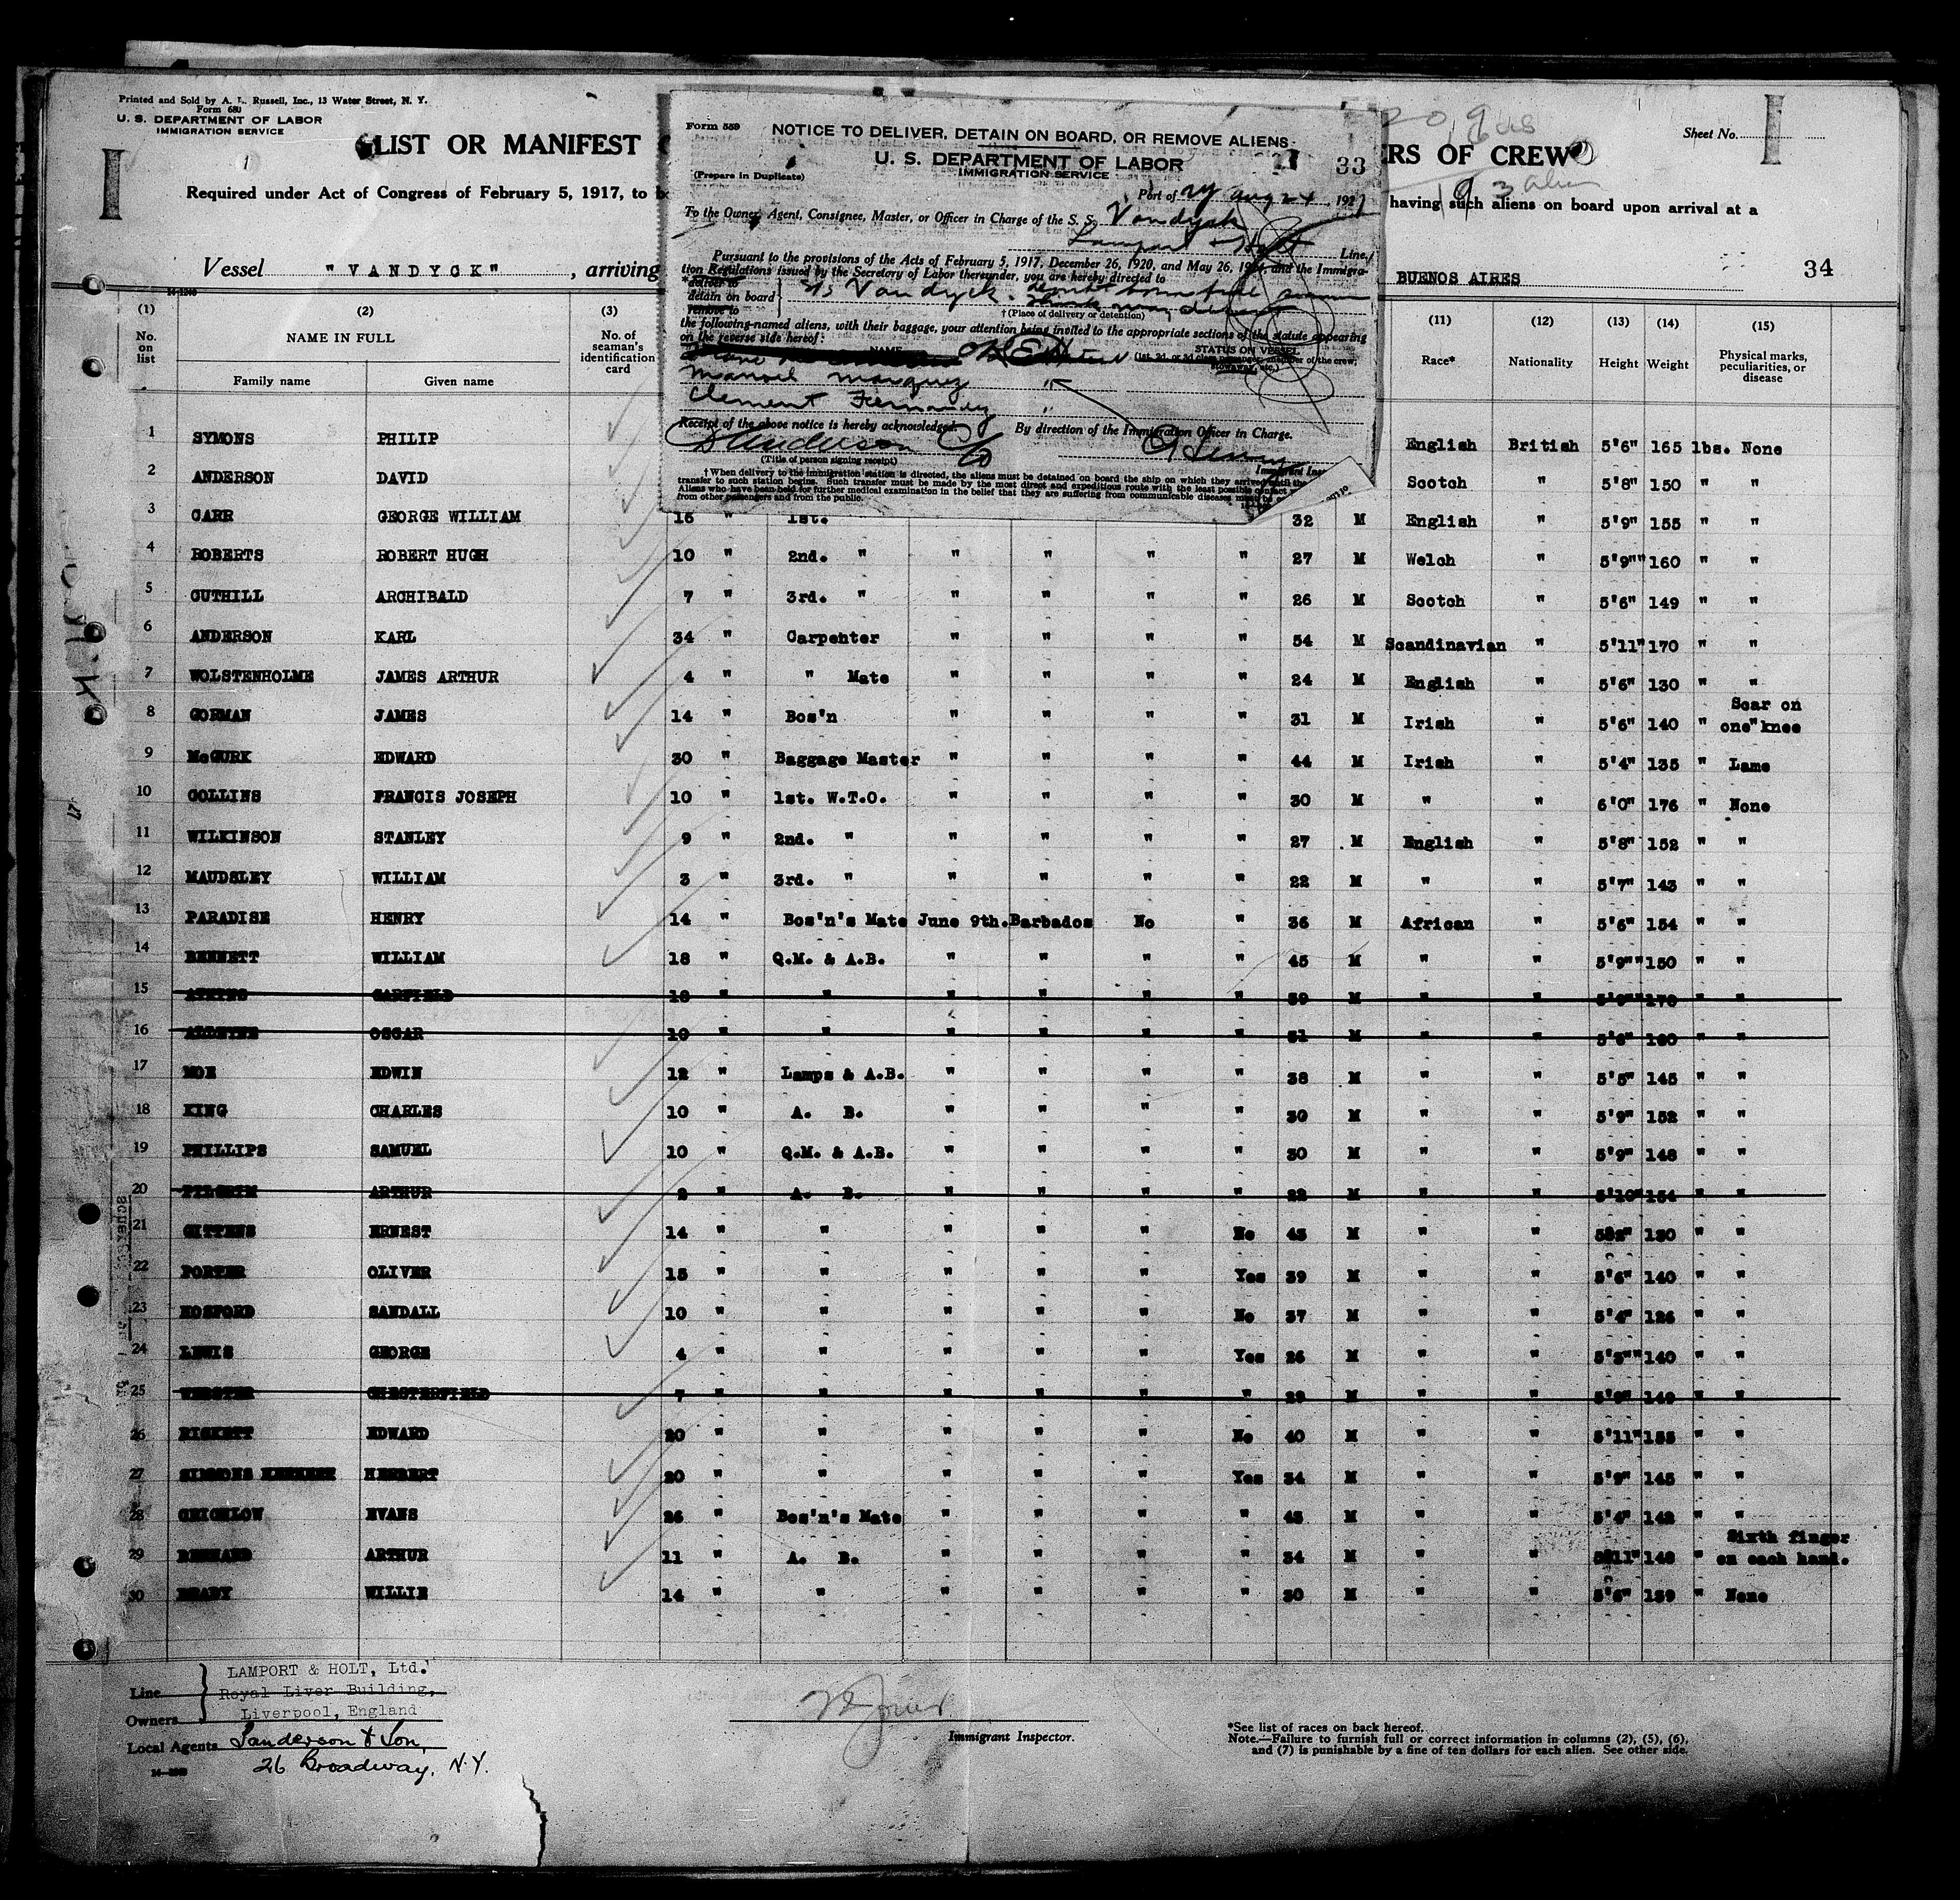 Printed and Sold by A. L. Russell, Inc., 13 Water Street, N. Y.
Form 680
U. S. DEPARTMENT OF LABOR
IMMIGRATION SERVICE
LIST OR MANIFEST
RS OF CREW
Sheet No.
1
Required under Act of Congress of February 5, 1917, to
having such aliens on board upon arrival at a
Vessel "VANDYCK", arriving
BUENOS AIRES
34
Form 559
NOTICE TO DELIVER, DETAIN ON BOARD, OR REMOVE ALIENS
U. S. DEPARTMENT OF LABOR
IMMIGRATION SERVICE
33
(Prepare in Duplicate)
Port of NY Aug 24, 1927
To the Owner, Agent, Consignee, Master, or Officer in Charge of the S. S. Vandyck
Lamport & Holt Line,
Pursuant to the provisions of the Acts of February 5, 1917, December 26, 1920, and May 26, 1924, and the Immigra-
tion Regulations issued by the Secretary of Labor thereunder, you are hereby directed to
deliver to
detain on board
remove to
S/S Vandyck
† (Place of delivery or detention)
the following-named aliens, with their baggage, your attention being invited to the appropriate sections of the statute appearing
on the reverse side hereof:
NAME
STATUS ON VESSEL
(1st, 2d, or 3d class passenger, member of the crew, stowaway, etc.)
Manoel Marquez "
Clement Fernandez "
Receipt of the above notice is hereby acknowledged.
By direction of the Immigration Officer in Charge.
D Anderson C/O
(Title of person signing receipt)
† When delivery to the immigration station is directed, the aliens must be detained on board the ship on which they arrived until the
transfer to such station begins. Such transfer must be made by the most direct and expeditious route with the least possible contact
Aliens who have been held for further medical examination in the belief that they are suffering from communicable diseases must be
from other passengers and from the public.
(1) (2) (3) (11) (12) (13) (14) (15)
No. on list
NAME IN FULL
Family name Given name
No. of seaman's identification card
Race* Nationality Height Weight Physical marks, peculiarities, or disease
1 SYMONS PHILIP English British 5'6" 165 lbs. None
2 ANDERSON DAVID Scotch " 5'8" 150 " "
3 CARR GEORGE WILLIAM 15 " 1st. 32 M English " 5'9" 155 " "
4 ROBERTS ROBERT HUGH 10 " 2nd. " " " " " 27 M Welch " 5'9"" 160 " "
5 CUTHILL ARCHIBALD 7 " 3rd. " " " " " 26 M Scotch " 5'6" 149 " "
6 ANDERSON KARL 34 " Carpenter " " " " 54 M Scandinavian " 5'11" 170 " "
7 WOLSTENHOLME JAMES ARTHUR 4 " " Mate " " " " 24 M English " 5'6" 130 " "
8 GORMAN JAMES 14 " Bos'n " " " " 31 M Irish " 5'6" 140 " Scar on one" knee
9 McGURK EDWARD 30 " Baggage Master " " " " 44 M Irish " 5'4" 135 " Lame
10 COLLINS FRANCIS JOSEPH 10 " 1st. W.T.O. " " " " 30 M " " 6'0" 176 " None
11 WILKINSON STANLEY 9 " 2nd. " " " " " 27 M English " 5'8" 152 " "
12 MAUDSLEY WILLIAM 3 " 3rd. " " " " " 22 M " " 5'7" 143 " "
13 PARADISE HENRY 14 " Bos'n's Mate June 9th. Barbados No " 36 M African " 5'6" 154 " "
14 BENNETT WILLIAM 18 " Q.M. & A.B. " " " " 45 M " " 5'9"" 150 " "
15 GARFIELD " " " " " " 39 M " " 170 " "
16 ALLEYNE OSCAR 10 " " " " " " 31 M " " 5'6" 160 " "
17 MOE EDWIN 12 " Lamps & A.B. " " " " 38 M " " 5'5" 145 " "
18 KING CHARLES 10 " A. B. " " " " 30 M " " 5'9" 152 " "
19 PHILLIPS SAMUEL 10 " Q.M. & A.B. " " " " 30 M " " 5'9" 148 " "
20 PILGRIM ARTHUR 2 " A. B. " " " " 22 M " " 5'10" 154 " "
21 GITTENS ERNEST 14 " " " " " No 43 M " " 130 " "
22 PORTER OLIVER 15 " " " " " Yes 39 M " " 5'6" 140 " "
23 HOSFORD SANDALL 10 " " " " " No 37 M " " 5'4" 126 " "
24 LEWIS GEORGE 4 " " " " " Yes 26 M " " 140 " "
25 WEBSTER CHESTERFIELD 7 " " " " " " 28 M " " 149 " "
26 RISKETT EDWARD 20 " " " " " No 40 M " " 5'11" 155 " "
27 SIMMONS HERBERT 20 " " " " " Yes 34 M " " 5'9" 145 " "
28 CRICHLOW EVANS 26 " Bos'n's Mate " " " " 45 M " " 5'4" 142 " "
29 ARTHUR 11 " A. B. " " " " 34 M " " 148 " Sixth finger on each hand.
30 BRADY WILLIE 14 " " " " " " 30 M " " 5'6" 139 " None
Line
Owners
LAMPORT & HOLT, Ltd.
Royal Liver Building,
Liverpool, England
Local Agents Sanderson & Son,
26 Broadway, N.Y.
Immigrant Inspector.
*See list of races on back hereof.
Note.—Failure to furnish full or correct information in columns (2), (5), (6),
and (7) is punishable by a fine of ten dollars for each alien. See other side.